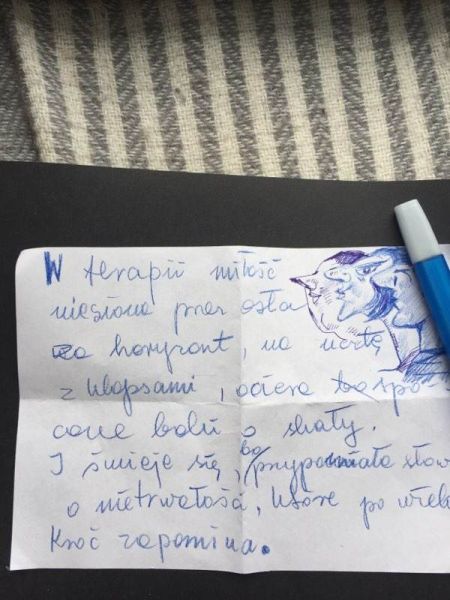 W terapii miłość
niesiona przez osła
za horyzont, na ucztę
z klopsami, ociera spo-
cone boki o skały.
I śmieje się, bo przypomniała słow
o nietrwałości, które po wielo
kroć zapomina.